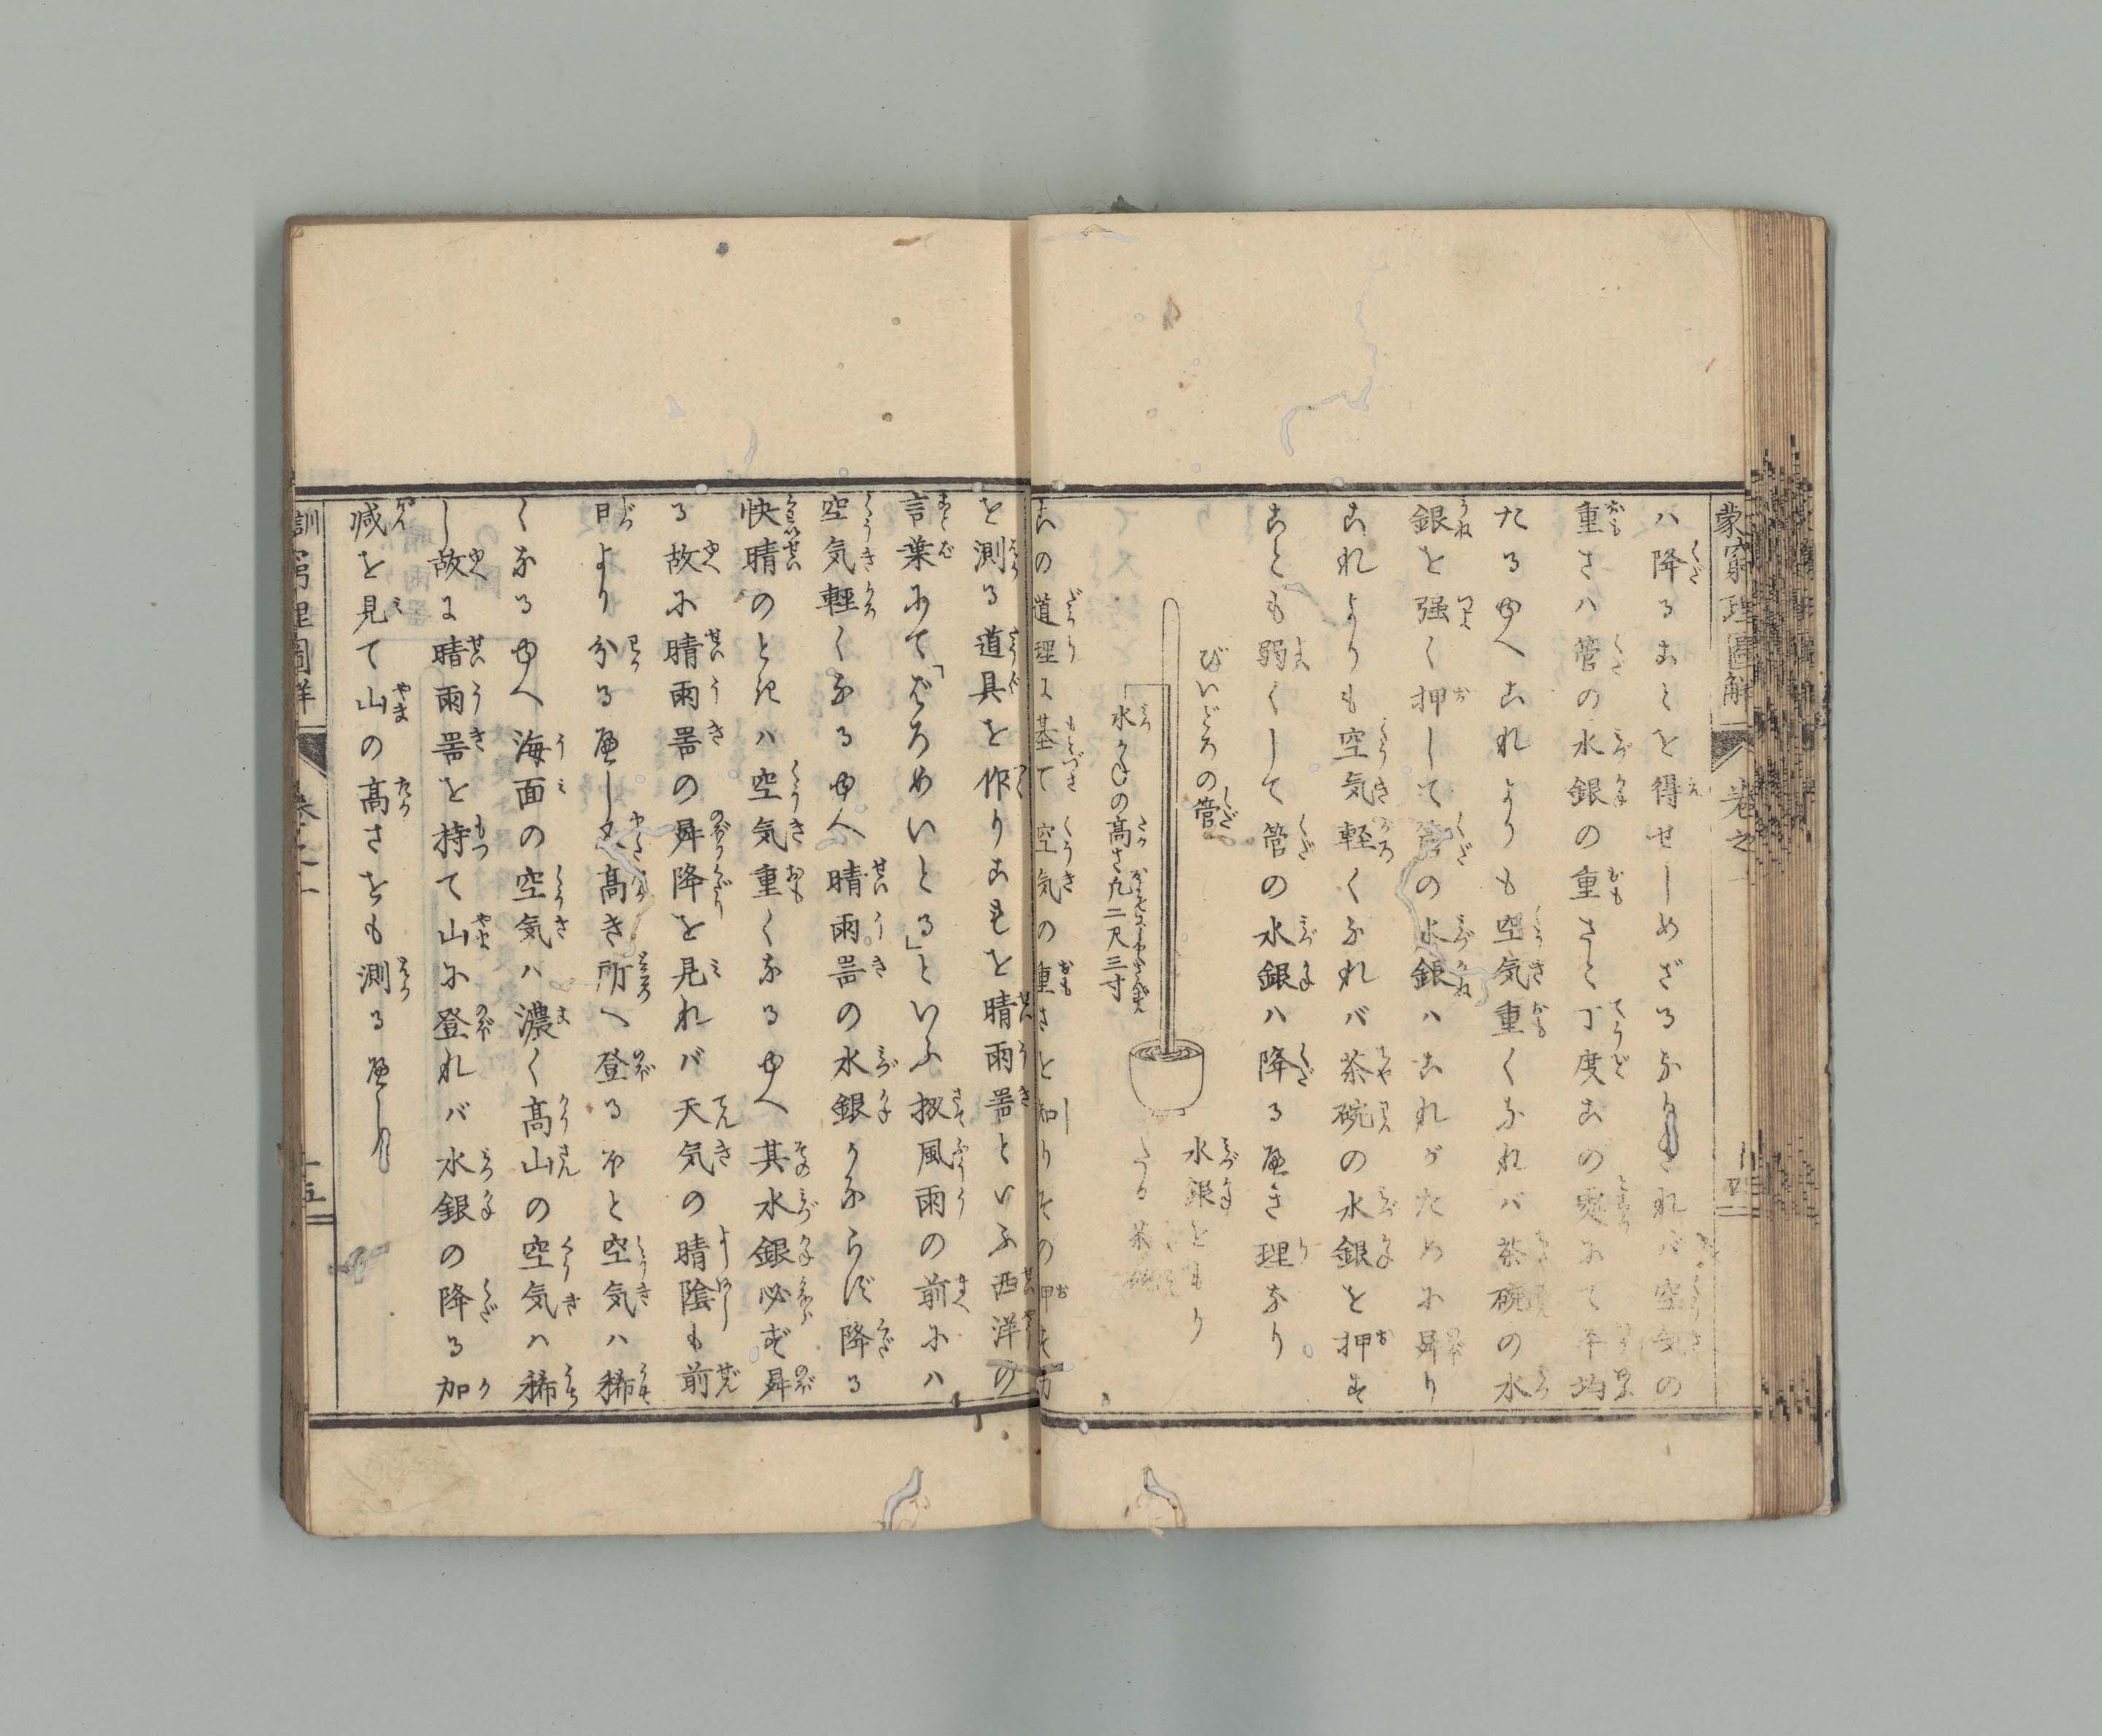 蒙窮理圖解 巻之一
ハ降ることを得せしめざるなりされバ空気の
重さハ管の水銀の重さと丁度この處にて平均
たるゆへこれよりも空気重くなれバ茶碗の水
銀を强く押して管の水銀ハこれがために昇り
これよりも空気軽くなれバ茶碗の水銀を押す
ことも弱くして管の水銀ハ降る可き理なり
びいどろの管
水銀をもり
たる茶碗
水がねの高さ凡二尺三寸
この道理に基て空気の重さと知りその押す力
を測る道具を作りこれを晴雨器といふ西洋の
言葉にて「ばろめいとる」といふ扨風雨の前にハ
空気軽くなるゆへ晴雨器の水銀かならず降る
快晴のときハ空気重くなるゆへ其水銀必ず昇
る故に晴雨器の昇降を見れバ天気の晴陰も前
日より分る可し又高き所へ登るほど空気ハ稀
くなるゆへ海面の空気ハ濃く高山の空気ハ稀
し故に晴雨器を持て山に登れバ水銀の降る加
減を見て山の高さをも測る可し
訓窮理圖解 巻之一 十五